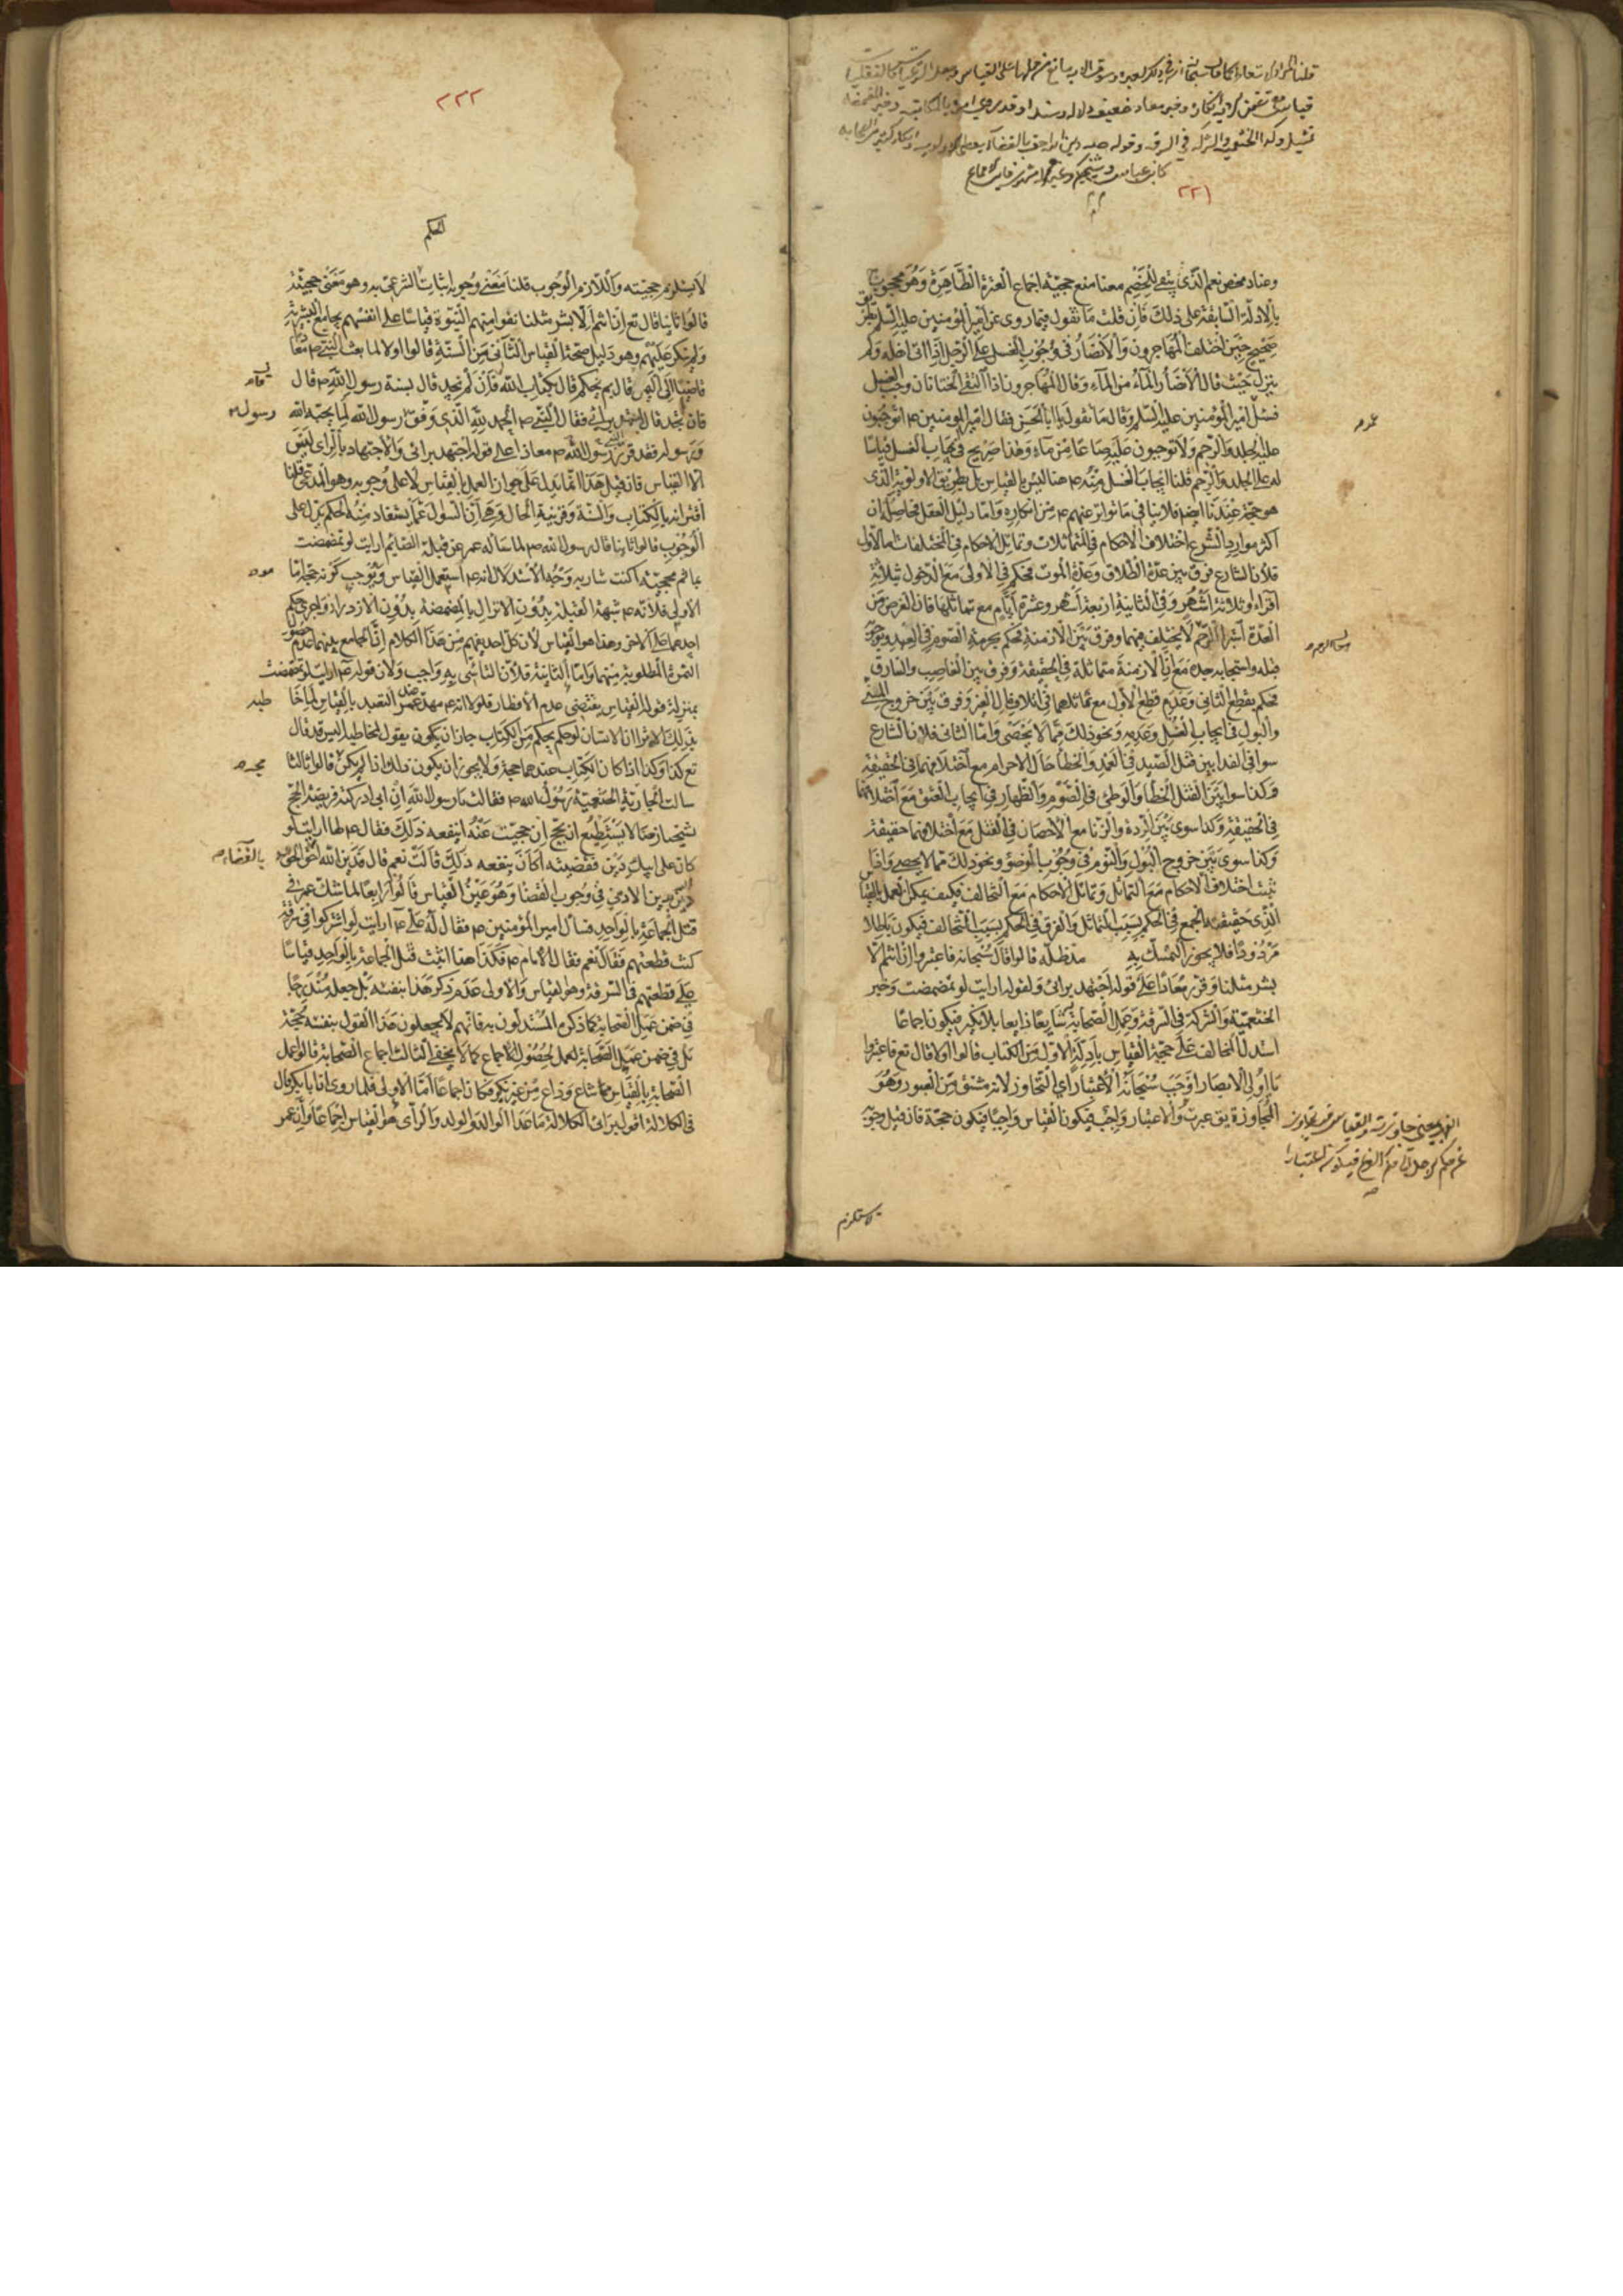 ٢٢١
وعناد محض نعم الذي يتقى للخصم معنا منع حجية اجماع العترة الطاهرة وهو محجوج
بالادلة السابقة على ذلك فان قلت ما تقول فيما روى عن امير المؤمنين عليه السلم بطريق
صحيح حين اختلف المهاجرون والانصار في وجوب الغسل على الرجل اذا اتى اهله ولم
ينزل حيث قال الانصار الماء من الماء وقال المهاجرون اذا التقى الختانان وجب الغسل
فسئل امير المؤمنين عليه السلم وقال ما تقول يا ابا الحسن فقال امير المؤمنين ع اتوجبون
عليه الجلد والرجم ولا توجبون عليه صاعا من ماء وهذا صريح في ايجاب الغسل قياسا
له على الجلد والرجم قلنا ايجاب الغسل منه ع هنا ليس بالقياس بل بطريق الاولوية الذي
هو حجة عندنا ايضا فلا ينافي ما تواتر عنهم ع من انكاره واما دليل العقل فحاصله ان
اكثر موارد الشرع اختلاف الاحكام في المتماثلات وتماثل الاحكام في المختلفات اما الاول
فلان الشارع فرق بين عدة الطلاق وعدة الموت فحكم في الاولى مع الدخول ثلاثة
اقراء او ثلاثة اشهر وفي الثانية اربعة اشهر وعشرة ايام مع تماثلهما فان الغرض من
العدة استبراء الرحم لا يختلف فيهما وفرق بين الازمنة فحكم بحرمة الصوم في العيد ووجوبه
قبله واستحبابه بعده مع ان الازمنة متماثلة في الحقيقة وفرق بين الغاصب والسارق
فحكم بقطع الثاني وعدم قطع الاول مع تماثلهما في اتلاف مال الغير وفرق بين خروج المنى
والبول في ايجاب الغسل وعدمه ونحو ذلك مما لا يحصى واما الثاني فلان الشارع
سوا في الفدا بين قتل الصيد في العمد والخطأ حال الاحرام مع اختلافهما في الحقيقة
وكذا سوا بين القتل الخطأ والوطئ في الصوم والظهار في ايجاب العتق مع اختلافهما
في الحقيقة وكذا سوى بين الردة والزنا مع الاحصان في القتل مع اختلافهما حقيقة
وكذا سوى بين خروج البول والنوم في وجوب الوضوء ونحو ذلك مما لا يحصى واذا
ثبت اختلاف الاحكام مع التماثل وتماثل الاحكام مع التخالف فكيف يمكن العمل بالقياس
الذي حقيقته الجمع في الحكم بسبب التماثل والفرق في الحكم بسبب التخالف فيكون باطلا
مردودا فلا يجوز التمسك به قالوا قال سبحانه فاعتبروا ان انتم الا
بشر مثلنا وقرر معاذا على قوله اجتهد برائي ولقوله ارايت لو تمضمضت وخبر
الخثعمية والشركة في السرقة وعمل الصحابة شايعا ذايعا بلا نكير فيكون اجماعا
استدل المخالف على حجية القياس بادلة الاول من الكتاب قالوا اولا قال تع فاعتبروا
يا اولى الابصار اوجب سبحانه الاعتبار اي التجاوز لانه مشتق من العبور وهو
المجاوزة يق عبرت والاعتبار واجب فيكون القياس واجبا فيكون حجة فان قيل وجوبه
لا يستلزم
٢٢٢
الحكم
لا يستلزم حجيته واللازم الوجوب قلنا معنى وجوبه اثبات الشرعى به وهو معنى حجيته
قالوا ثانيا قال تع ان انتم الا بشر مثلنا نفوا منهم النبوة قياسا على انفسهم بجامع البشرية
ولم ينكر عليهم وهو دليل صحة القياس الثاني من السنة قالوا اولا لما بعث النبي ص معاذا
قاضيا الى اليمن قال بم تحكم قال بكتاب الله فان لم تجد قال بسنة رسول الله ص قال
فان لم تجد قال اجتهد برائي فقال النبي ص الحمد لله الذي وفق رسول رسول الله لما يحبه الله
ورسوله فقد قرر رسول الله ص معاذا على قوله اجتهد برائي والاجتهاد بالراى ليس
الا القياس فان قيل هذا انما يدل على جواز العمل بالقياس لا على وجوبه وهو المدعى قلنا
اقترانه بالكتاب والسنة وقرينة الحال وهي ان السؤال عما يستفاد منه الحكم يدل على
الوجوب قالوا ثانيا قال رسول الله ص لما ساله عمر عن قبلة الصائم ارايت لو تمضمضت
بماء ثم مججته اكنت شاربه وجه الاستدلال انه ع استعمل القياس وهو يوجب كونه حجة اما
الاولى فلانه ع شبه القبلة بدون الانزال بالمضمضة بدون الازدراد واجرى حكم
احدهما على الاخر وهذا هو القياس لان كل احد يفهم من هذا الكلام ان الجامع بينهما عدم حصول
الثمرة المطلوبة منهما واما الثانية فلان التاسى به واجب ولان قوله ع ارايت لو تمضمضت
بذلك الا ترى ان الانسان لو حكم بحكم من الكتاب جاز ان يكون يقول لمخاطبه اليس قد قال
تع كذا وكذا اذا كان الكتاب عندهما حجة ولا يجوز ان يكون ذلك اذا لم يكن قالوا ثالثا
سالت الجارية الخثعمية رسول الله ص فقالت يا رسول الله ان ابى ادركته فريضة الحج
شيخا زمنا لا يستطيع ان يحج ان حججت عنه اينفعه ذلك فقال ع لها ارايت لو
كان على ابيك دين فقضيته اكان ينفعه ذلك قالت نعم قال فدين الله احق بالقضاء
دين الادمي في وجوب القضا وهو عين القياس قالوا رابعا لما شك عمر في
قتل الجماعة بالواحد فسال امير المؤمنين ع فقال له على ع ارايت لو اشتركوا في سرقة
كنت قطعتهم فقال نعم فقال الامام ع فكذا هنا اثبت قتل الجماعة بالواحد قياسا
على قطعهم في السرقة وهو القياس والاولى عدم ذكر هذا بنفسه بل جعله مندرجا
في ضمن عمل الصحابة كما ذكره المستدلون به فانهم لا يجعلون هذا القول بنفسه حجة
بل في ضمن عمل الصحابة لحصول الاجماع كما لا يخفى الثالث اجماع الصحابة قالوا عمل
الصحابة بالقياس مما شاع وذاع من غير نكير فكان اجماعا اما الاولى فلما روى ان ابا بكر قال
في الكلالة اقول برائي الكلالة ما عدا الوالد والولد والرأى هو القياس اجماعا وان عمر